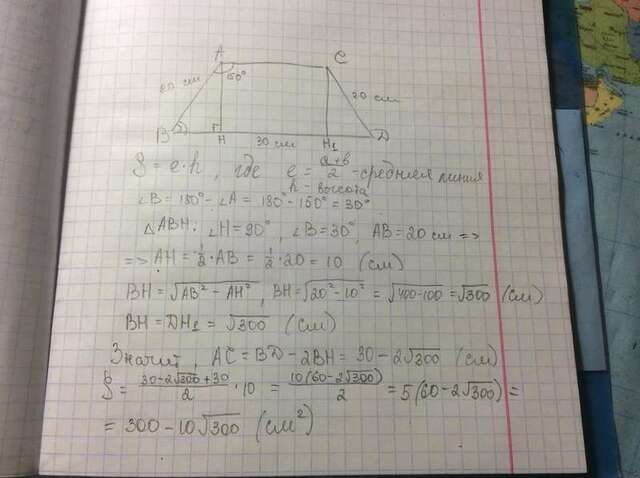 A
C
150°
20 см
20 см
B
H
30 см
H₁
D
S = e·h, где e = (a+b)/2 - средняя линия
h - высота
∠B = 180° - ∠A = 180° - 150° = 30°
△ABH: ∠H = 90°, ∠B = 30°, AB = 20 см =>
=> AH = 1/2·AB = 1/2·20 = 10 (см)
BH = √(AB² - AH²), BH = √(20² - 10²) = √(400-100) = √300 (см)
BH = DH₁ = √300 (см)
Значит, AC = BD - 2BH = 30 - 2√300 (см)
S = (30 - 2√300 + 30)/2 · 10 = 10(60 - 2√300)/2 = 5(60 - 2√300) =
= 300 - 10√300 (см²)